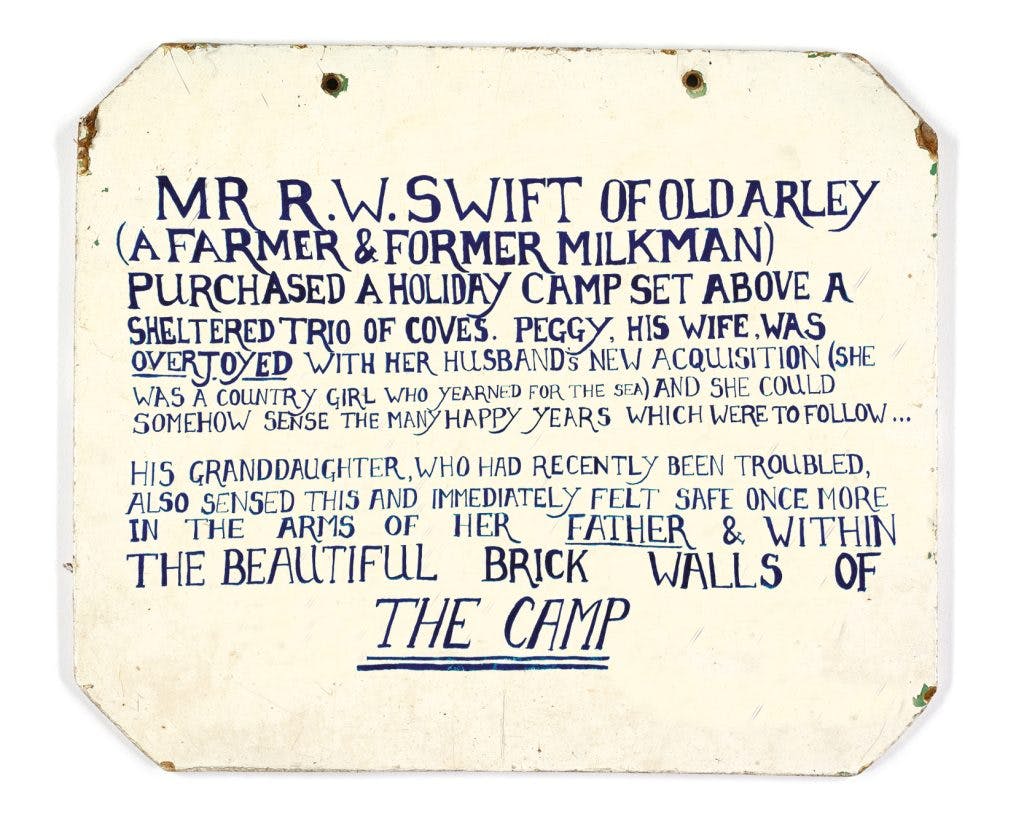 MR R.W. SWIFT OF OLD ARLEY
(A FARMER & FORMER MILKMAN)
PURCHASED A HOLIDAY CAMP SET ABOVE A
SHELTERED TRIO OF COVES. PEGGY, HIS WIFE, WAS
OVERJOYED WITH HER HUSBAND'S NEW ACQUISITION (SHE
WAS A COUNTRY GIRL WHO YEARNED FOR THE SEA) AND SHE COULD
SOMEHOW SENSE THE MANY HAPPY YEARS WHICH WERE TO FOLLOW...
HIS GRANDDAUGHTER, WHO HAD RECENTLY BEEN TROUBLED,
ALSO SENSED THIS AND IMMEDIATELY FELT SAFE ONCE MORE
IN THE ARMS OF HER FATHER & WITHIN
THE BEAUTIFUL BRICK WALLS OF
THE CAMP